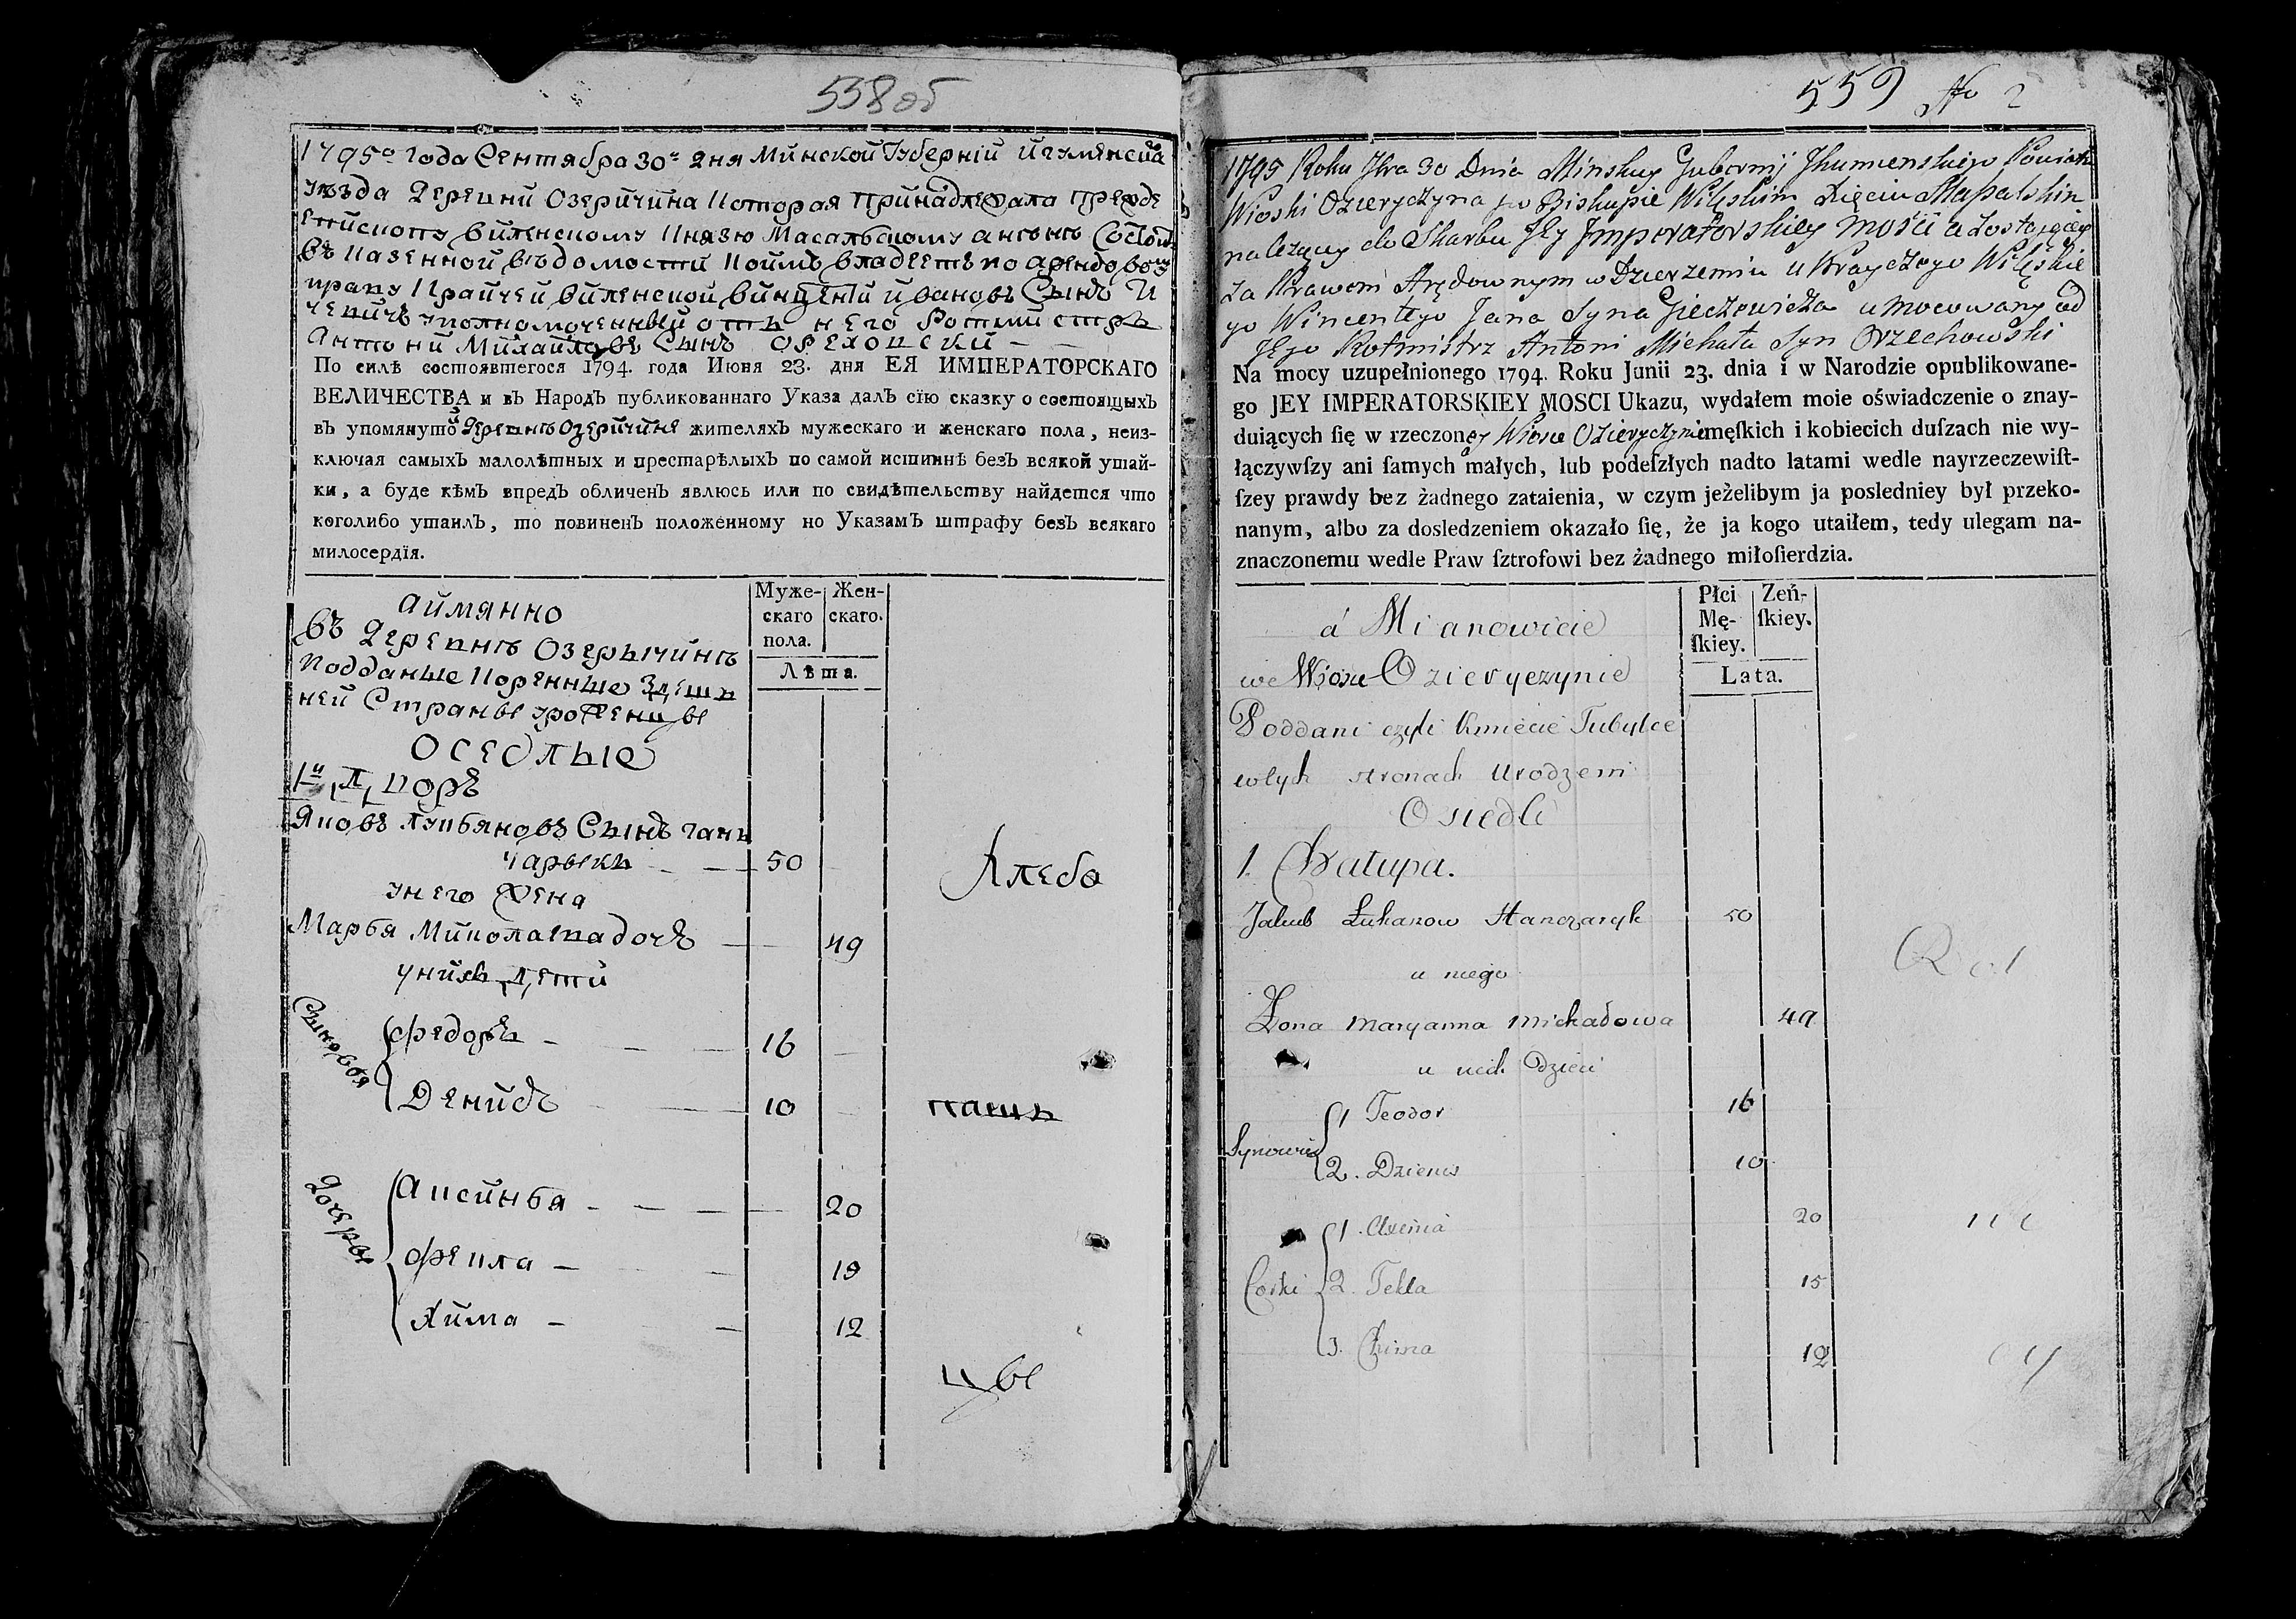 558об
1795о года Сентября 30го дня Минской Губерній Игуменска
уѣзда Деревни Озеричина которая принадлежала прежде
Епископу Виленскому Князю Масальскому а нынѣ Состоит
въ Казенной вѣдомости коимъ владеетъ по арендовому
праву Крайчей Виленской Винцентій Ивановъ Сынъ
уполномоченный отъ него Ротмистръ
Антоній Михайловъ Сынъ Орѣховски
По силѣ состоявшегося 1794. года Июня 23. дня ЕЯ ИМПЕРАТОРСКАГО
ВЕЛИЧЕСТВА и вЪ НародЪ публикованнаго Указа далЪ сію сказку о состоящыхЪ
вЪ упомянутой Деревнѣ Озеричине жителяхЪ мужескаго и женскаго пола, неиз-
ключая самыхЪ малолѣтныхЪ и престарѣлыхЪ по самой истиннѣ безЪ всякой утай-
ки, а буде кѣмЪ впредЪ обличенЪ явлюсь или по свидѣтельству найдется что
коголибо утаилЪ, то повиненЪ положенному по УказамЪ штрафу безЪ всякаго
милосердія.
Муже-
скаго
пола.
Жен-
скаго.
Лѣта.
а Имянно
въ Деревнѣ Озерычинѣ
Подданые Коренные здешъ
ней Страны уроженцы
Оседлые
1й Двор
Яковъ Лукьяновъ Сынъ ганъ
чарыкъ 50
у него Жена
Марья Миколаева дочь 49
у нихъ дети
Сыновья
Федоръ 16
Денисъ 10
Дочеры
Аксинья 20
Фекла 15
Хима 12
Хлеба
пашъ
цы
559 No 2
1795 Roku 7bra 30 Dnia Minskiey Gubernij Jhumenskiego Powiatu
Wioski Ozieryczyna po Biskupie Wileskim Xięciu Massalskim
nalezący do Skarbu Jey Jmperatorskiey Mości a zostającey
za Prawem Arędownym w Dzierzeniu u Krayczego Wileskie
go Wincentego Jana Syna Gieczewicza umocowany od
Jego Rotmistrz Antoni Michała Syn Orzechowski
Na mocy uzupełnionego 1794. Roku Junii 23. dnia i w Narodzie opublikowane-
go JEY IMPERATORSKIEY MOSCI Ukazu, wydałem moie oświadczenie o znay-
duiących ſię w rzeczoney Wiosce Ozieryczynie męſkich i kobiecich duſzach nie wy-
łączywſzy ani ſamych małych, lub podeſzłych nadto latami wedle nayrzeczewiſt-
ſzey prawdy bez żadnego zataienia, w czym jeżelibym ja posledniey był przeko-
nanym, albo za dosledzeniem okazało ſię, że ja kogo utaiłem, tedy ulegam na-
znaczonemu wedle Praw ſztrofowi bez żadnego miłoſierdzia.
Płci
Mę-
ſkiey.
Zeń-
ſkiey.
Lata.
á Mianowicie
we Wiosce Ozieryczynie
Poddani czyli Kmiecie Tubylce
w tych stronach Urodzeni
Osiedli
1. Chałupa.
Jakub Łukanow Hanczaryk 50
u niego
Zona Maryanna Mickałowa 49
u nich Dzieci
Synowie
1 Teodor 16
2. Dzienis 10
Corki
1. Axenia 20
2. Tekla 15
3. Chima 12